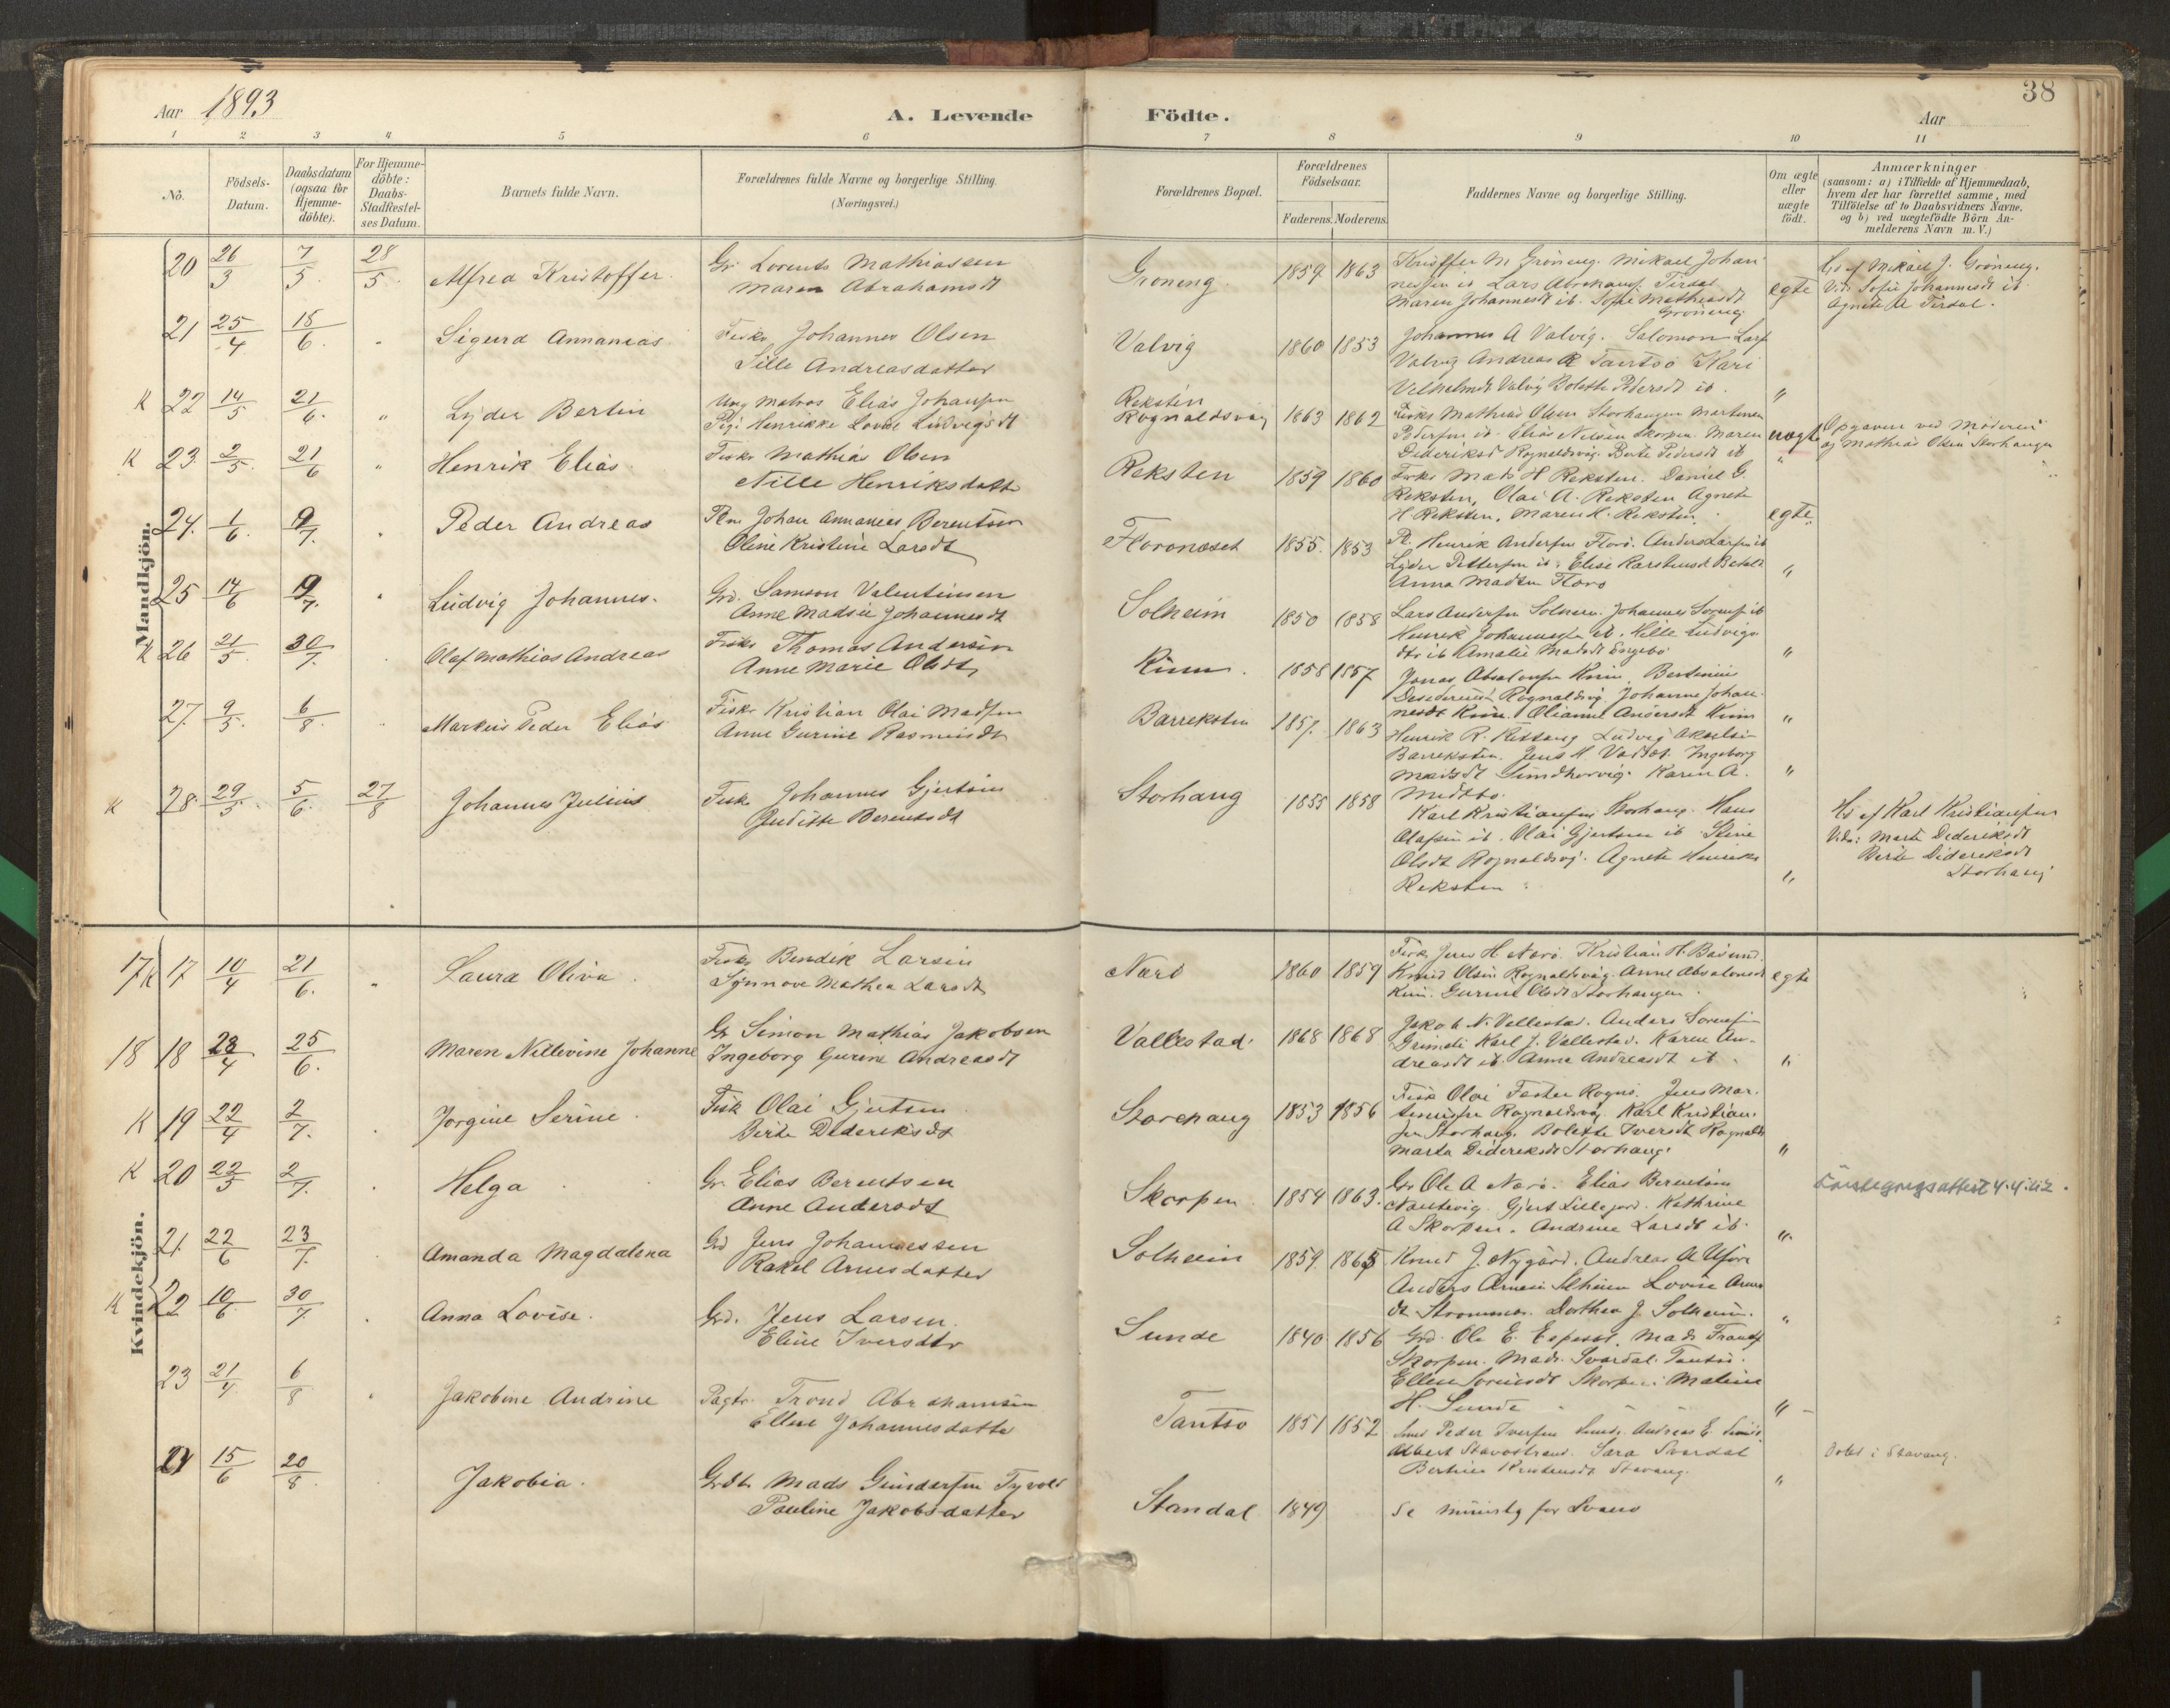 Aar 1893
A. Levende
1 2 3 4 5 6
No.
Födsels-
Datum.
Daabsdatum
(ogsaa for
Hjemme-
döbte).
For Hjemme-
döbte:
Daabs-
Stadfæstel-
ses Datum.
Barnets fulde Navn.
Forældrenes fulde Navne og borgerlige Stilling.
(Næringsvei.)
38
Födte.
Aar
7 8 9 10 11
Forældrenes Bopæl.
Forældrenes
Födselsaar.
Faderens. Moderens.
Faddernes Navne og borgerlige Stilling.
Om ægte
eller
uægte
födt.
Anmærkninger
(saasom: a) i Tilfælde af Hjemmedaab,
hvem der har forrettet samme, med
Tilföielse af to Daabsvidners Navne.
og b) ved uægtefödte Börn An-
melderens Navn m. V.)
Mandkjön.
20 26/3 7/5 28/5 Alfred Kristoffer Gr. Lorents Mathiassen
Maren Abrahamsdt
Groneng 1859 1863
Maren Johannesdt ib. Sofie Mathiasdt
Groneng
egte
Hd af Mikael J. Gröneng.
Vid: Sofie Johannesdt ib
Agnete A Tirdal.
21 25/4 18/6 " Sigurd Annanias Fisker Johannes Olsen
Sille Andreasdatter
Valvig 1860 1853 Johannes A Valvig. Salomon Lars
Valvig Andreas R Tantsö Kari
Vilhelmdt Valvig Bolette Pedersdt ib. "
K 22 14/5 21/6 " Lyder Bertin Ung Matros Elias Johansen
Pige Henrikke Lovise Ludvigsdt
Reksten
Rognaldsvaag 1863 1862 Fisker Mathias Olsen Storhaugen Martinus
Pedersen ib. Elias Nilsen Skorpen. Maren
Dideriksd Rognaldsvåg. Berte Pedersdt ib
uægte
Opgaven ved Moderen
og Mathias Olsen Storhaugen
K 23 2/5 21/6 " Henrik Elias Fisker Mathias Olsen
Nille Henriksdatter
Reksten 1859 1860 Fisker Mads H Reksten. Daniel G.
Reksten, Olai A. Reksten Agnete
H. Reksten, Maren H. Reksten. egte
24. 1/6 9/7 " Peder Andreas Johan Annanias Berentsen
Oline Kristine Larsdt
Floronæset 1855. 1853 Henrik Andersen Floro. Anders Larsen ib
Lyder Pettersen ib. Elise
Anna Madsen Floro "
25 14/6 9/7 " Ludvig Johannes. Grd. Samson Valentinsen
Anne Madsie Johannesdt
Solheim 1850 1858 Lars Andersen Solheim. Johannes Sorensen ib
Henrik Johannesen ib. Hille Ludvigs-
dtr ib Amalie Madsdt Engebö "
K 26 21/5 30/7 Olaf Mathias Andreas Fisker Thomas Andersen
Anne Marie Olsdt
Kinn. 1858 1857 Jonas Absalonsen Kinn. Bertinius
Rognaldsvåg. Johanne Johan-
nesdt Kinn. Olianne Andersdt Kinn "
27. 9/5 6/8 Markus Peder Elias Fisker Kristian Olai Madsen
Anne Gurine Rasmusdt
Barreksten 1857. 1863 Henrik R. Ludvig Akselsen
Barreksten. Jens M. Ingeborg
Madsdt Karen A.
Midtbö. "
K 28 29/5 5/6 27/8 Johannes Julius Fisker Johannes Gjertsen
Juditte Berentsdt
Storhaug 1855 1858 Karl Kristiansen Storhaug. Hans
Olafsen ib. Olai Gjertsen ib Stine
Olsdt Rognaldsvåg. Agnete Henriks
Reksten "
Hd af Karl Kristiansen
Vidn: Marte Dideriksdt
Berte Dideriksdt
Storhaug
Kvindekjön.
17 K 17 10/4 21/6 " Laura Oliva. Fisker Bendik Larsen
Synnove Mathea Larsdt
Narö 1860 1859 Fisk Jens H Narö. Kristian H. Båsund.
Knud Olsen Rognaldsvåg. Anne Absalonsdt
Kinn. Gurine Olsdt Storhaugen. egte
18 18 23/4 25/6 Maren Nillevine Johanne Gr Simon Mathias Jakobsen
Ingeborg Gurine Andreasdt
Vallestad 1868 1868 Jakob N. Vallestad. Anders Sorensen
Grimeli Karl J. Vallestad. Karen An-
dreasdt ib Anna Andreasdt ib "
K 19 22/4 2/7 Jorgine Serine. Fisk Olai Gjertsen
Berte Dideriksdt
Storehaug 1853 1856 Fisk Olai Jens Mar-
Rognaldsvåg. Karl Kristian-
sen Storhaug. Bolette Iversdt Rognalds
Marta Dideriksdt Storhaug. "
K 20 22/5 2/7 Helga Gr. Elias Berentsen
Anne Andersdt
Skorpen 1854 1863. Gr Ole A Narö. Elias Berentsen
Nautevig. Gjert Lillejord. Kathrine
A Skorpen. Andrine Larsdt ib. "
21. 22/6 23/7 Amanda Magdalena Grd Jens Johannessen
Rakel Arnesdatter
Solheim 1859. 1865 Knud J. Nygård. Andreas A Ufore
Anders Arnesen Solheim Lovise Arnes
dt Strommen. Dorthea J. Solheim. "
K 22 10/6 30/7 Anna Lovise. Grd. Jens Larsen.
Eline Iversdtr
Sunde 1840 1856 Grd. Ole E. Espeset. Mads Frantz
Skorpen. Mads Svardal. Tantsö.
Ellen Sorensdt Skorpen. Malene
H. Sunde "
23 21/4 6/8 Jakobine Andrine Pagtr. Trond Abrahamsen
Ellen Johannesdatter
Tantsö 1851 1852 Peder Iversen Sunde. Andreas E.
Albert Stavöstrand. Sara Svardal
Bertine Kristensdt Stavang. "
Döbt i Stavang.
24 15/6 20/8 Jakobia. Mads Gundersen
Pauline Jakobsdatter
Standal 1849 Se for Svanö